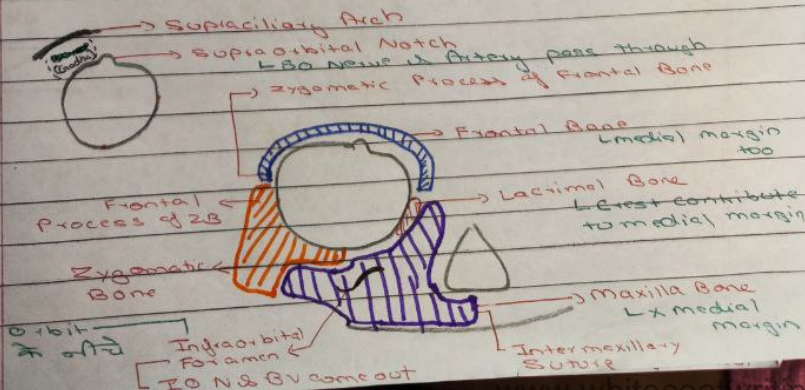 Supraciliary Arch
Supraorbital Notch
SO Nerve & Artery pass through
Zygomatic Process of Frontal Bone
Frontal Bone
medial margin
too
Lacrimal Bone
Crest contribute
to medial margin
Frontal
Process of ZB
Zygomatic
Bone
Maxilla Bone
x medial
margin
Orbit
के नीचे
Infraorbital
Foramen
IO N & BV come out
Intermaxillary
Suture